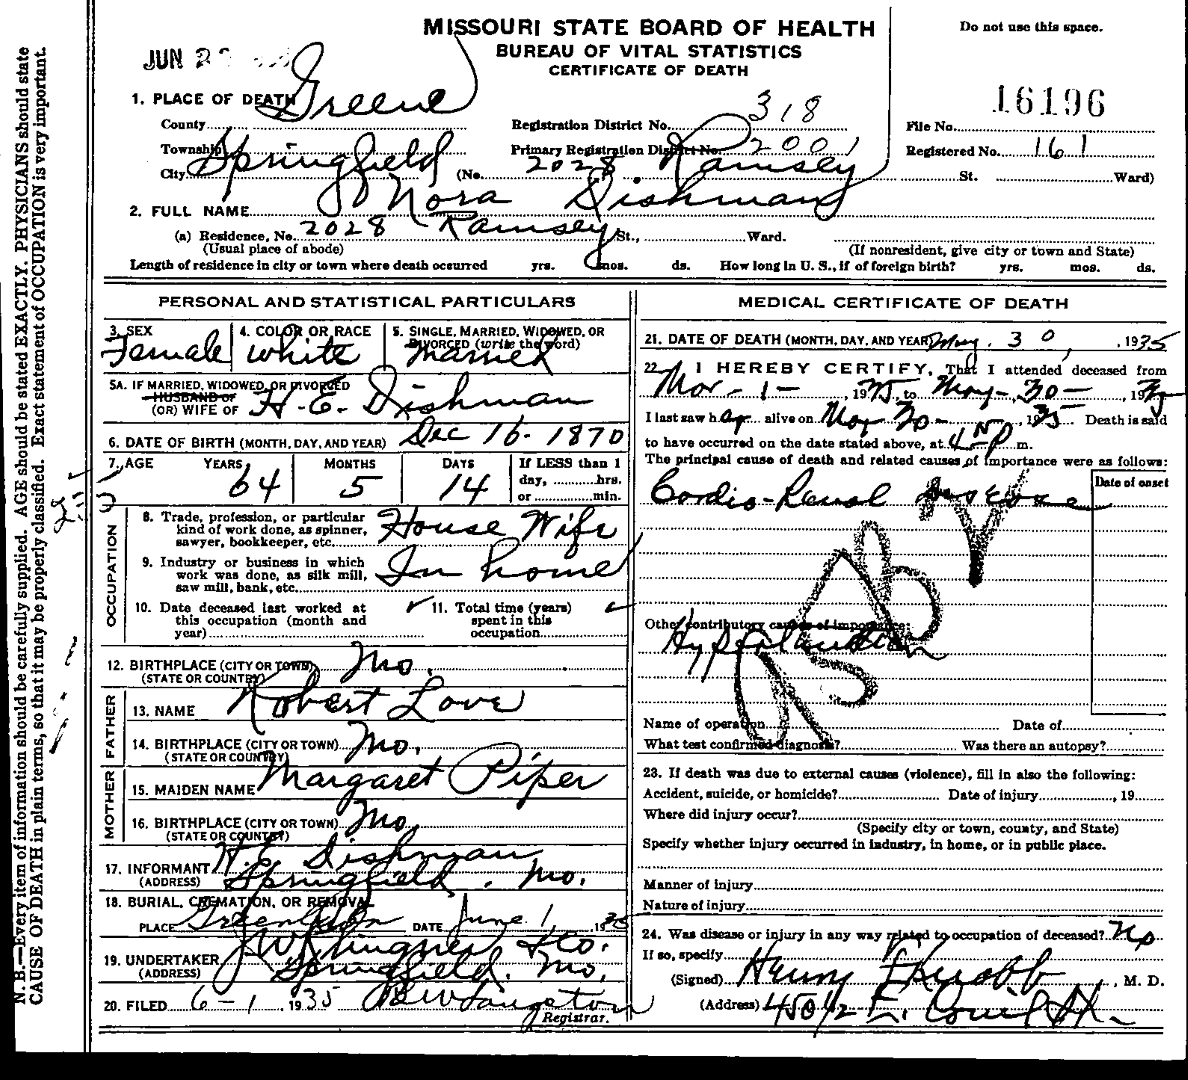 MISSOURI STATE BOARD OF HEALTH
BUREAU OF VITAL STATISTICS
CERTIFICATE OF DEATH
Do not use this space.
JUN
1. PLACE OF DEATH
County Greene
Registration District No. 318
16196
File No.
Township
Primary Registration District No. 2001
Registered No. 161
City Springfield (No. 2028 Ramsey St. Ward)
2. FULL NAME Nora Dishman
(a) Residence, No. 2028 Ramsey St., Ward.
(Usual place of abode) (If nonresident, give city or town and State)
Length of residence in city or town where death occurred yrs. mos. ds. How long in U. S., if of foreign birth? yrs. mos. ds.
PERSONAL AND STATISTICAL PARTICULARS
3. SEX Female
4. COLOR OR RACE White
5. SINGLE, MARRIED, WIDOWED, OR DIVORCED (write the word) Married
5A. IF MARRIED, WIDOWED, OR DIVORCED
HUSBAND OF
(OR) WIFE OF H. E. Dishman
6. DATE OF BIRTH (MONTH, DAY, AND YEAR) Dec 16 - 1870
7. AGE YEARS 64 MONTHS 5 DAYS 14 If LESS than 1 day, hrs. or min.
OCCUPATION
8. Trade, profession, or particular kind of work done, as spinner, sawyer, bookkeeper, etc. House Wife
9. Industry or business in which work was done, as silk mill, saw mill, bank, etc. In home
10. Date deceased last worked at this occupation (month and year)
11. Total time (years) spent in this occupation
12. BIRTHPLACE (CITY OR TOWN) Mo.
(STATE OR COUNTRY)
FATHER
13. NAME Robert Love
14. BIRTHPLACE (CITY OR TOWN) Mo.
(STATE OR COUNTRY)
MOTHER
15. MAIDEN NAME Margaret Piper
16. BIRTHPLACE (CITY OR TOWN) Mo.
(STATE OR COUNTRY)
17. INFORMANT H. E. Dishman
(ADDRESS) Springfield, Mo.
18. BURIAL, CREMATION, OR REMOVAL
PLACE DATE June 1 1935
19. UNDERTAKER J.W. Klingner & Co.
(ADDRESS) Springfield, Mo.
20. FILED 6-1 1935
Registrar.
MEDICAL CERTIFICATE OF DEATH
21. DATE OF DEATH (MONTH, DAY, AND YEAR) May. 30, 1935
22. I HEREBY CERTIFY, That I attended deceased from
Mar - 1 - , 1935, to May - 30 - , 1935
I last saw her alive on May 30 - , 1935 Death is said
to have occurred on the date stated above, at 4 P m.
The principal cause of death and related causes of importance were as follows:
Date of onset
Cardio-Renal disease
Other contributory causes of importance:
Name of operation Date of
What test confirmed diagnosis? Was there an autopsy?
23. If death was due to external causes (violence), fill in also the following:
Accident, suicide, or homicide? Date of injury , 19
Where did injury occur?
(Specify city or town, county, and State)
Specify whether injury occurred in industry, in home, or in public place.
Manner of injury
Nature of injury
24. Was disease or injury in any way related to occupation of deceased? No
If so, specify
(Signed) Henry , M. D.
(Address) 450 1/2 E.
N. B.—Every item of information should be carefully supplied. AGE should be stated EXACTLY. PHYSICIANS should state
CAUSE OF DEATH in plain terms, so that it may be properly classified. Exact statement of OCCUPATION is very important.